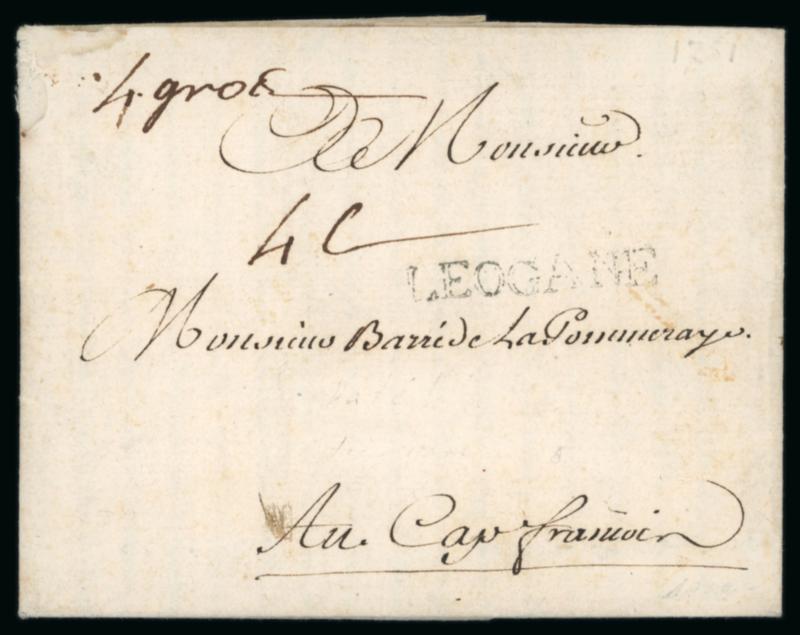 4 gros
De Monsieur.
4 C
LEOGANE
Monsieur Barré de La Pommeraye.
Au Cap françois